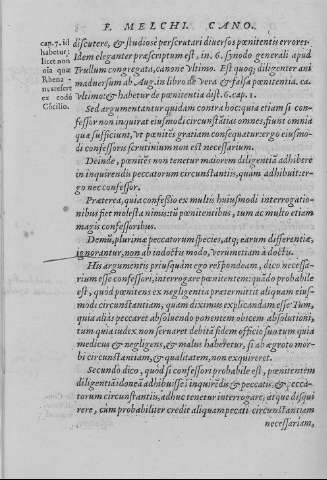 F. MELCHI. CANO.
cap. 7. id
habetur;
licet non
oia quæ
Rhena
nus refert
ex codẽ
Cõcilio.
discutere, & studiosè perscrutari diuersos pœnitentis errores.
Idem eleganter præscriptum est, in. 6. synodo generali apud
Trullum congregata, canone vltimo. Est quoq; diligenter ani
maduersum ab Aug. in libro de vera & falsa pœnitentia. ca.
vltimo: & habetur de pœnitentia dist. 6. cap. 1.
Sed argumentantur quidam contra hoc: quia etiam si con-
fessor non inquirat eiusmodi circunstãtias omnes, fiunt omnia
quæ sufficiunt, vt pœnitẽs gratiam consequatur: ergo eiusmo-
di confessoris scrutinium non est necessarium.
Deinde, pœnitẽs non tenetur maiorem diligentiã adhibere
in inquirendis peccatorum circunstantiis, quam adhibuit: er-
go nec confessor.
Præterea, quia confessio ex multis huiusmodi interrogatio-
nibus fiet molesta nimis: tũ pœnitentibus, tum ac multo etiam
magis confessoribus.
Demũ, plurimæ peccatorum species, atq; earum differentiæ,
ignorantur, non ab indoctis modo, verum etiam à doctis.
His argumentis priusquàm ego respondeam, dico necessa-
rium esse confessori, interrogare pœnitentem: quãdo probabile
est, quod pœnitens ex negligentia prætermittit aliquam eius-
modi circunstantiam, quam diximus explicandam esse. Tum,
quia aliàs peccaret absoluendo ponentem obicem absolutioni,
tum quia iudex non seruaret debitã fidem officio suo: tum quia
medicus & negligens, & malus haberetur, si ab ægroto mor-
bi circunstantiam, & qualitatem, non exquireret.
Secundo dico, quòd si confessori probabile est, pœnitentem
diligentiã idoneã adhibuisse in inquirẽdis & peccatis, & pecca-
torum circunstantiis, adhuc tenetur interrogare, atque disqui
rere, cum probabiliter credit aliquam peccati circunstantiam
necessariam,